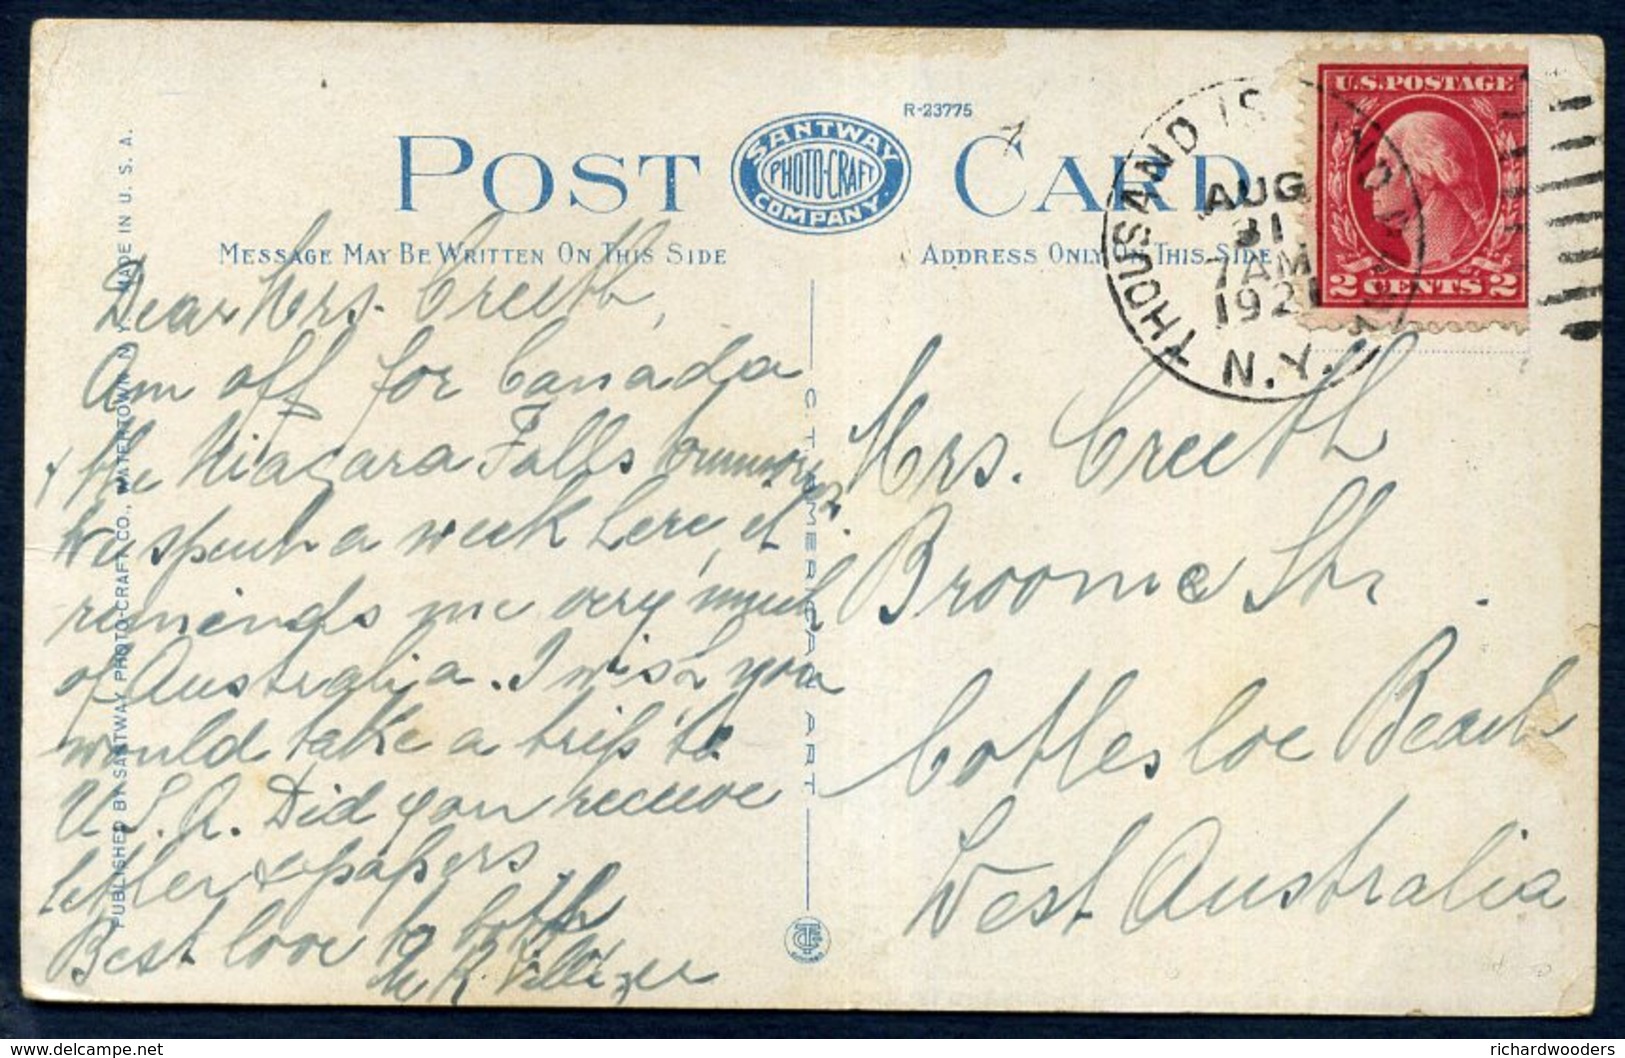 R-23775
POST CARD
SANTWAY
PHOTO-CRAFT
COMPANY
MESSAGE MAY BE WRITTEN ON THIS SIDE
ADDRESS ONLY ON THIS SIDE
THOUSAND ISLAND PARK
AUG
31
7AM
1921
N.Y.
U.S.POSTAGE
2 CENTS 2
PUBLISHED BY SANTWAY PHOTO-CRAFT CO., WATERTOWN, N.Y. MADE IN U.S.A.
C. T. AMERICAN ART
Dear Mrs. Creeth,
Am off for Canada
& the Niagara Falls tomorrow
We spent a week here, it
reminds me very much
of Australia. I wish you
would take a trip to
U.S.A. Did you receive
letter & papers
Best love to both
Mrs. Creeth
Broome St.
Cottesloe Beach
West Australia
delcampe.net
richardwooders